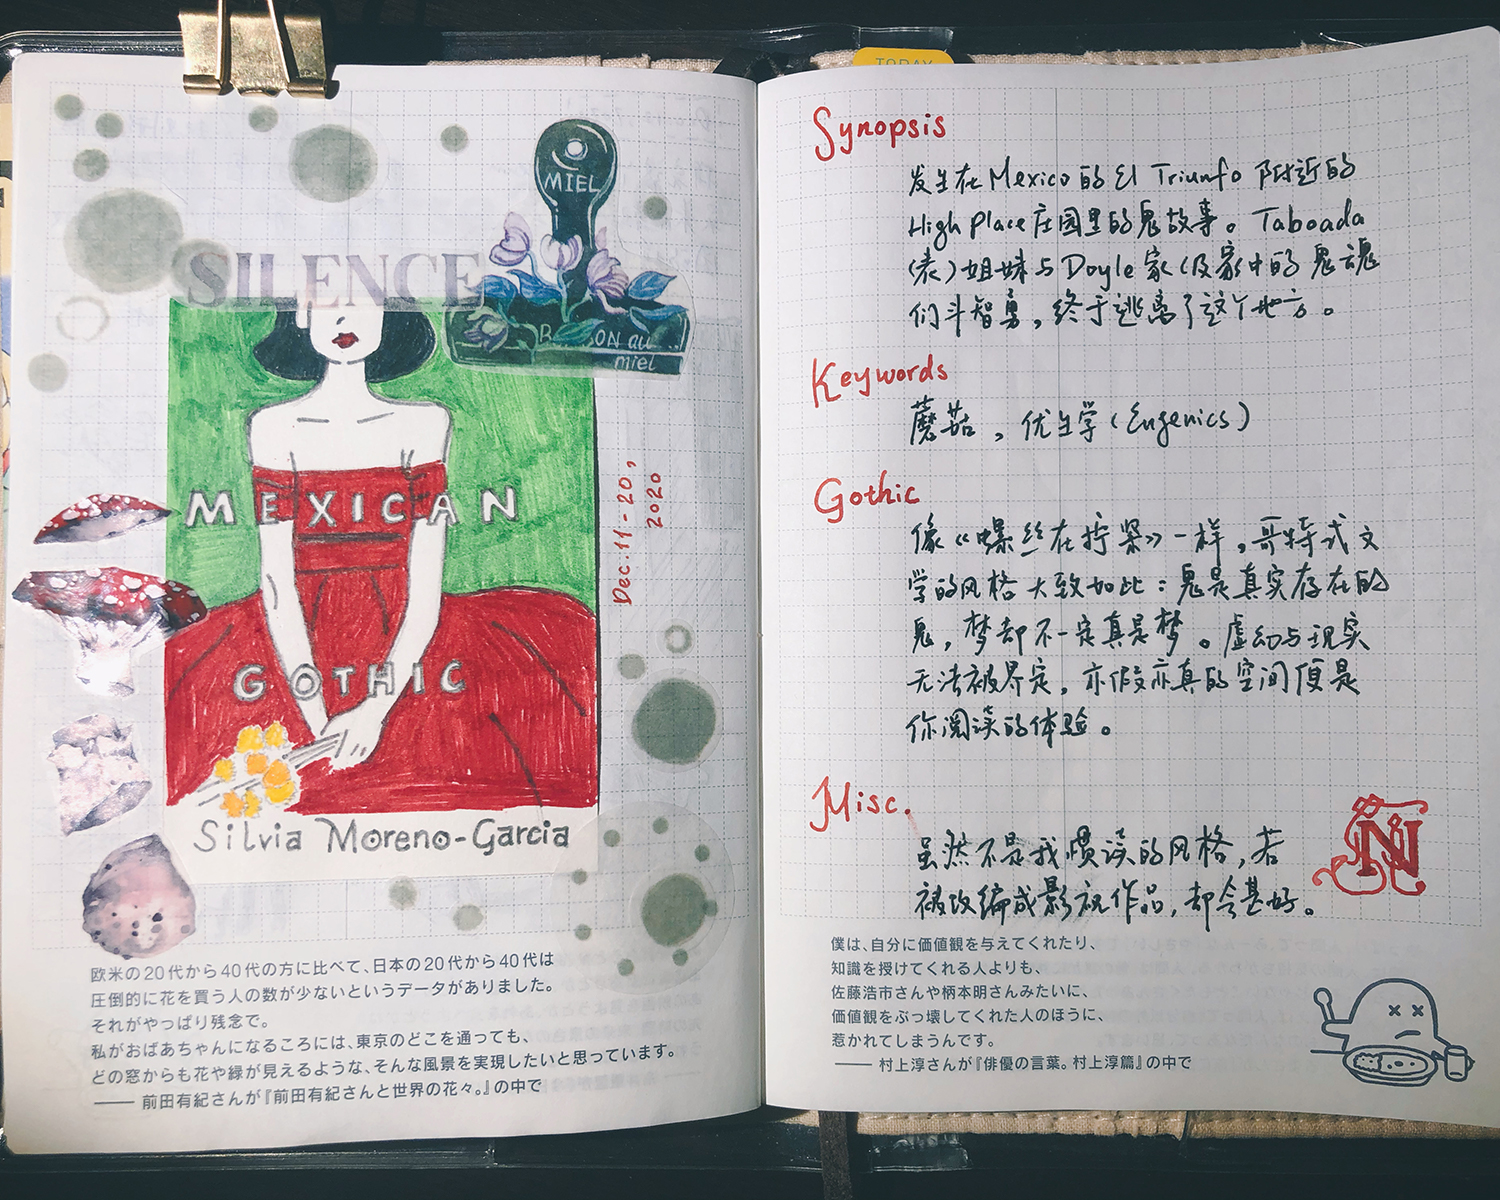 SILENCE
MIEL
au
miel
MEXICAN
GOTHIC
Silvia Moreno-Garcia
Dec.11-20,
2020
欧米の20代から40代の方に比べて、日本の20代から40代は
圧倒的に花を買う人の数が少ないというデータがありました。
それがやっぱり残念で。
私がおばあちゃんになるころには、東京のどこを通っても、
どの窓からも花や緑が見えるような、そんな風景を実現したいと思っています。
—— 前田有紀さんが『前田有紀さんと世界の花々。』の中で
TODAY
Synopsis
发生在Mexico的El Triunfo附近的
High Place庄园里的鬼故事。Taboada
(表)姐妹与Doyle家(及家中的鬼魂
们斗智勇,终于逃离了这个地方。
Keywords
蘑菇,优生学(Eugenics)
Gothic
像《螺丝在拧紧》一样,哥特式文
学的风格大致如此:鬼是真实存在的
鬼,梦却不一定真是梦。虚幻与现实
无法被界定,亦假亦真的空间便是
你阅读的体验。
Misc.
虽然不是我惯读的风格,若
被改编成影视作品,却会甚好。
僕は、自分に価値観を与えてくれたり、
知識を授けてくれる人よりも、
佐藤浩市さんや柄本明さんみたいに、
価値観をぶっ壊してくれた人のほうに、
惹かれてしまうんです。
—— 村上淳さんが『俳優の言葉。村上淳篇』の中で